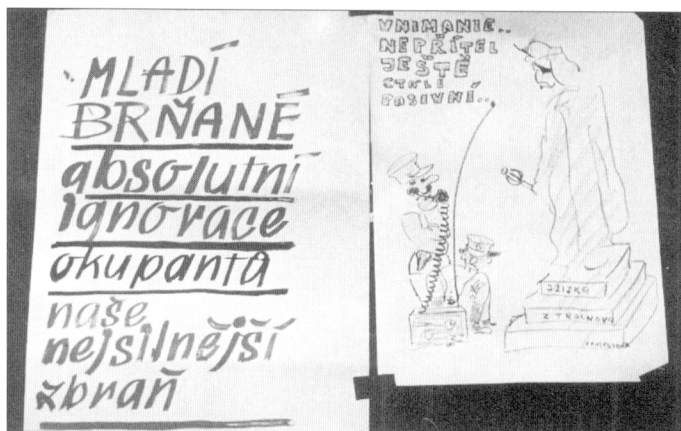 MLADÍ
BRŇANÉ
absolutní
ignorace
okupanta
naše
nejsilnější
zbraň
VNIMANIE..
NEPŘÍTEL
JEŠTĚ
PASIVNÍ..
J.ŽIŽKA
Z TROCNOVA